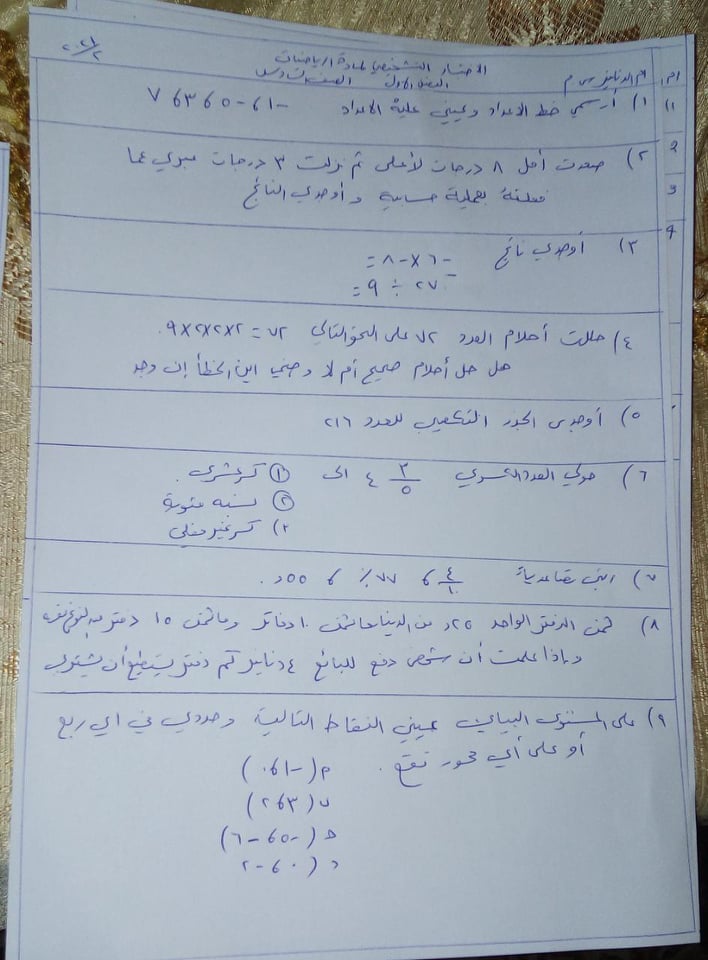 ٢٠٢٦/٢
الاختبار التشخيصي لمادة الرياضيات
الفصل الأول الصف السادس
١) أرسمي خط الأعداد وعيني عليه الأعداد -١ ، -٥ ، ٣ ، ٧
٢) صعدت أمل ٨ درجات لأعلى ثم نزلت ٣ درجات عبري عما
فعلته بعملية حسابية وأوجدي الناتج
٣) أوجدي ناتج -٦ × -٨ =
-٢٧ ÷ ٩ =
٤) حللت أحلام العدد ٧٢ على النحو التالي ٧٢ = ٢×٢×٢×٩
هل حل أحلام صحيح أم لا وضحي اين الخطأ إن وجد
٥) أوجدي الجذر التكعيبي للعدد ٢١٦
٦) حولي العدد الكسري ٤ ٣/٥ الى ① كسر عشري
② نسبة مئوية
٣) كسر غير فعلي
٧) رتبي تصاعدياً ٤/١٠ ، ٧٧٪ ، ٥٥,٠
٨) ثمن الدفتر الواحد ٢٥,٠ من الدينار ما ثمن ١٠ دفاتر وما ثمن ١٥ دفتر
وإذا علمت أن شخص دفع للبائع ٤ دنانير كم دفتر يستطيع أن يشتري
٩) على المستوى البياني عيني النقاط التالية وحددي في اي ربع
أو على أي محور تقع .
م (-١ ، ٠)
ب (٣ ، ٢)
هـ (-٥ ، -٦)
د (٠ ، -٢)